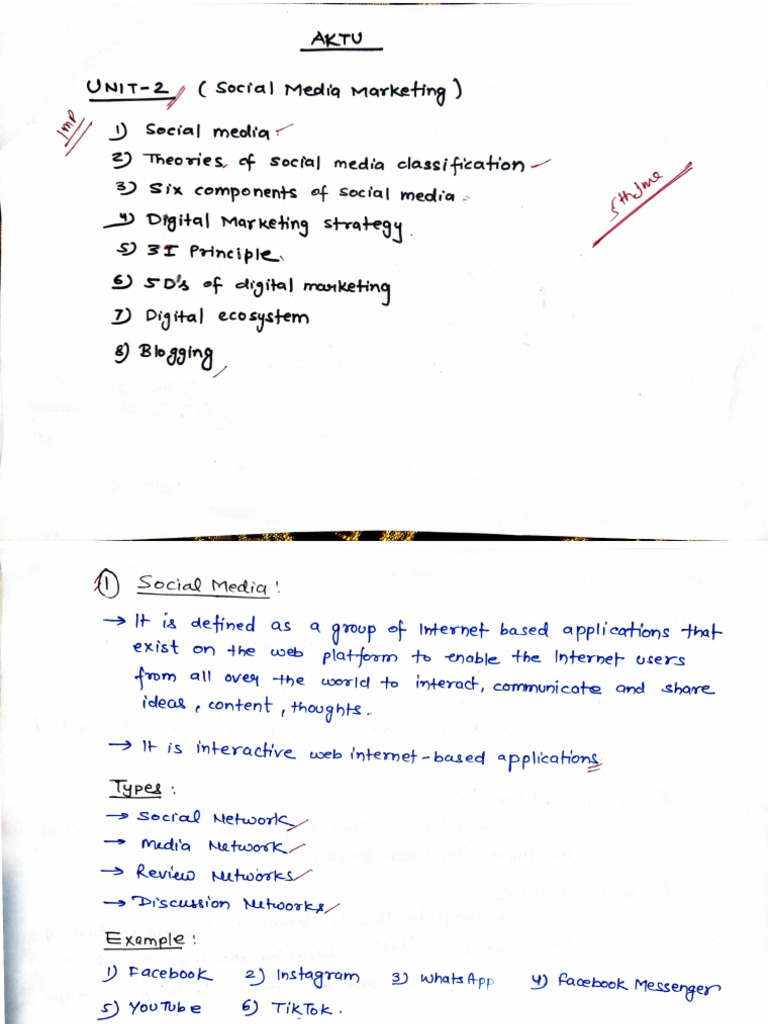 AKTU
UNIT-2 (Social Media Marketing)
IMP
1) Social media
2) Theories of social media classification
3) Six components of social media
4) Digital Marketing strategy.
5) 3I Principle
6) 5D's of digital marketing
7) Digital ecosystem
8) Blogging
1 Social Media:
→ It is defined as a group of Internet based applications that
exist on the web platform to enable the Internet users
from all over the world to interact, communicate and share
ideas, content, thoughts.
→ It is interactive web internet-based applications
Types:
→ Social Network
→ Media Network
→ Review Networks
→ Discussion Networks
Example:
1) Facebook 2) Instagram 3) WhatsApp 4) Facebook Messenger
5) YouTube 6) TikTok.